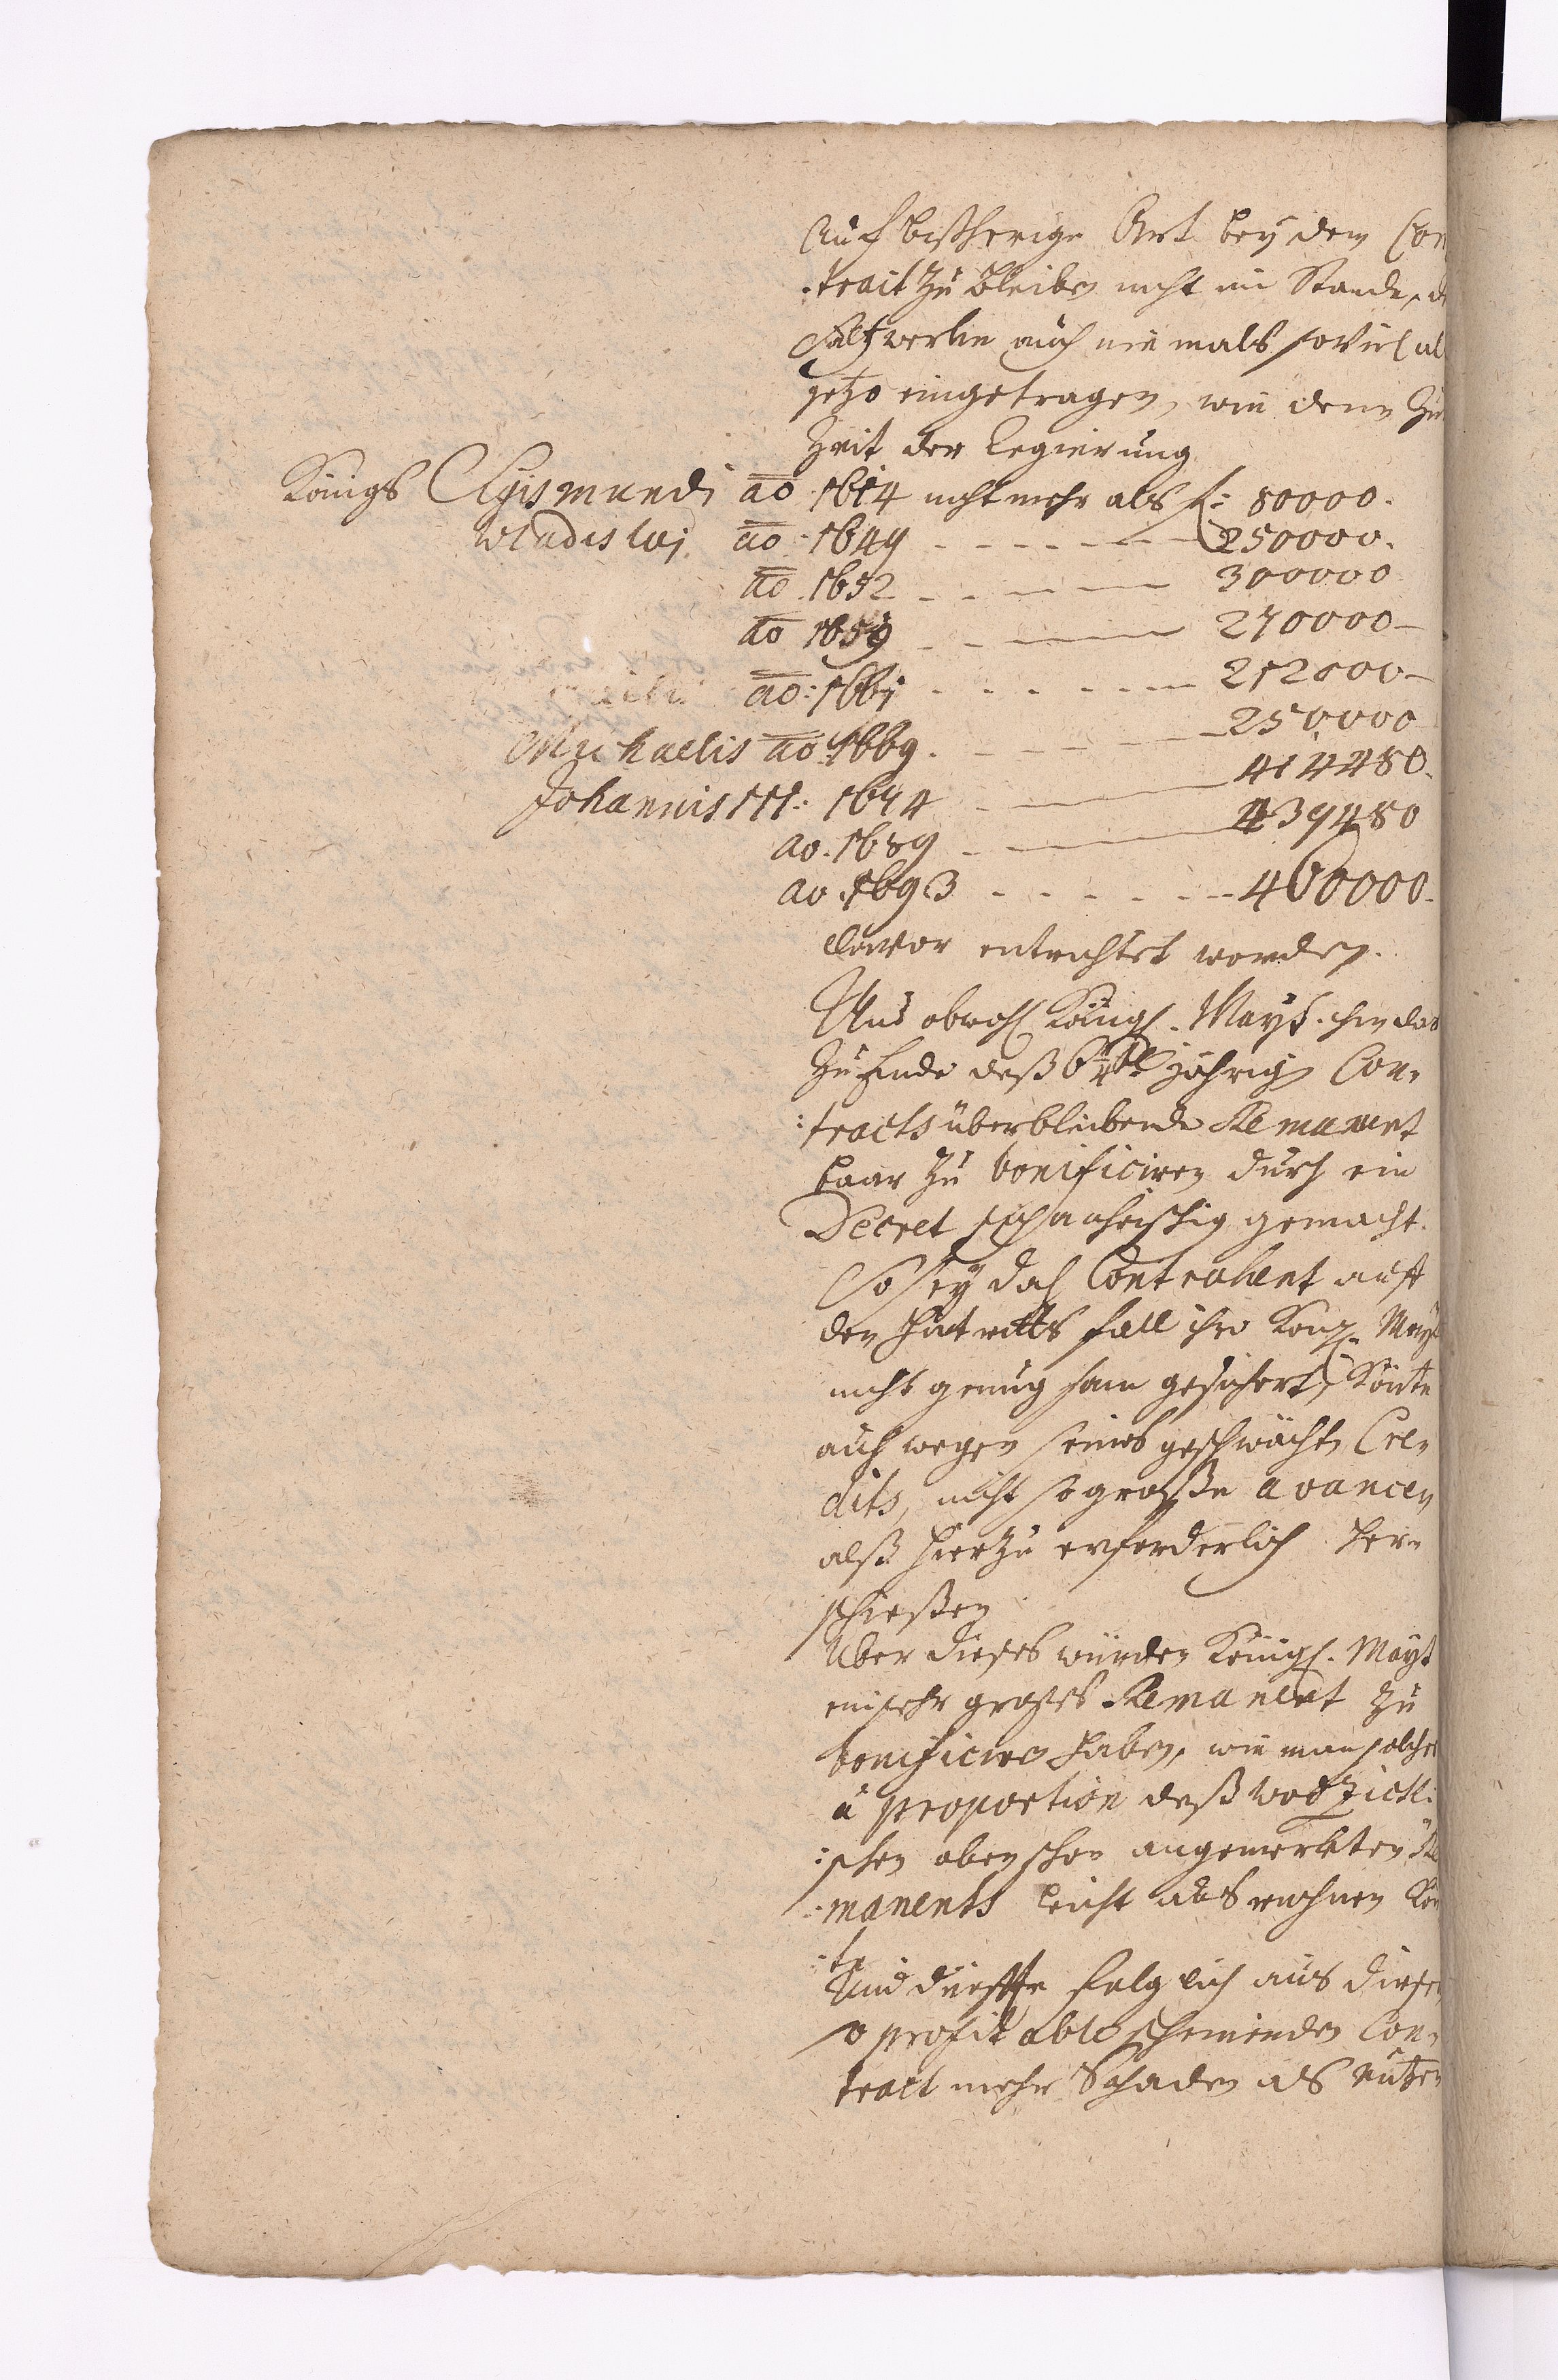 Auf bißherige Art bey dem Con
:trait zu bleiben nicht im Stande, d
Saltzwercke auch niemals soviel al
jetzo eingetragen, wie denn zu
Zeit der Regierung
Königs Sigismundi ao 1614 nicht mehr als f: 80000.
Wladislai ao. 1649 - - - - - - 250000.
ao. 1652 - - - - - 300000
ao 1659 - - - - 270000-
ao: 1661 - - - - - - 212000-
Michaelis ao 1669. - - - - 250000
Johannis III: 1674 - - - 414480.
ao. 1689 - - - 439480
ao. 1693 - - - - - - 460000.
davor entrichtet worden.
Und obwohl Königl. Mayt. ihm das
zu Ende deß 6 jährigen Con-
:tracts überbleibende Remanent
baar zu bonificiren durch ein
Decret sich anheischig gemacht.
So sey doch Contrahent auf
den Hintritts fall ihro Königl. Mayt
nicht genugsam gesichert, Könte
auch wegen seines geschwächten Cre-
dits, nicht so große avancen
alß hierzu erforderlich her-
schießen
Uber dieses würden Königl. Mayt
ein sehr großes Remanent zu
bonificiren haben, wie man solches
à proportion deß Wodzicki-
:schen oben schon angemerkten Re
:manents leicht ausrechnen Kön
:te
Und dürffte folglich aus diesen
so profitable scheinenden Con-
tract mehr Schaden als Nutzen